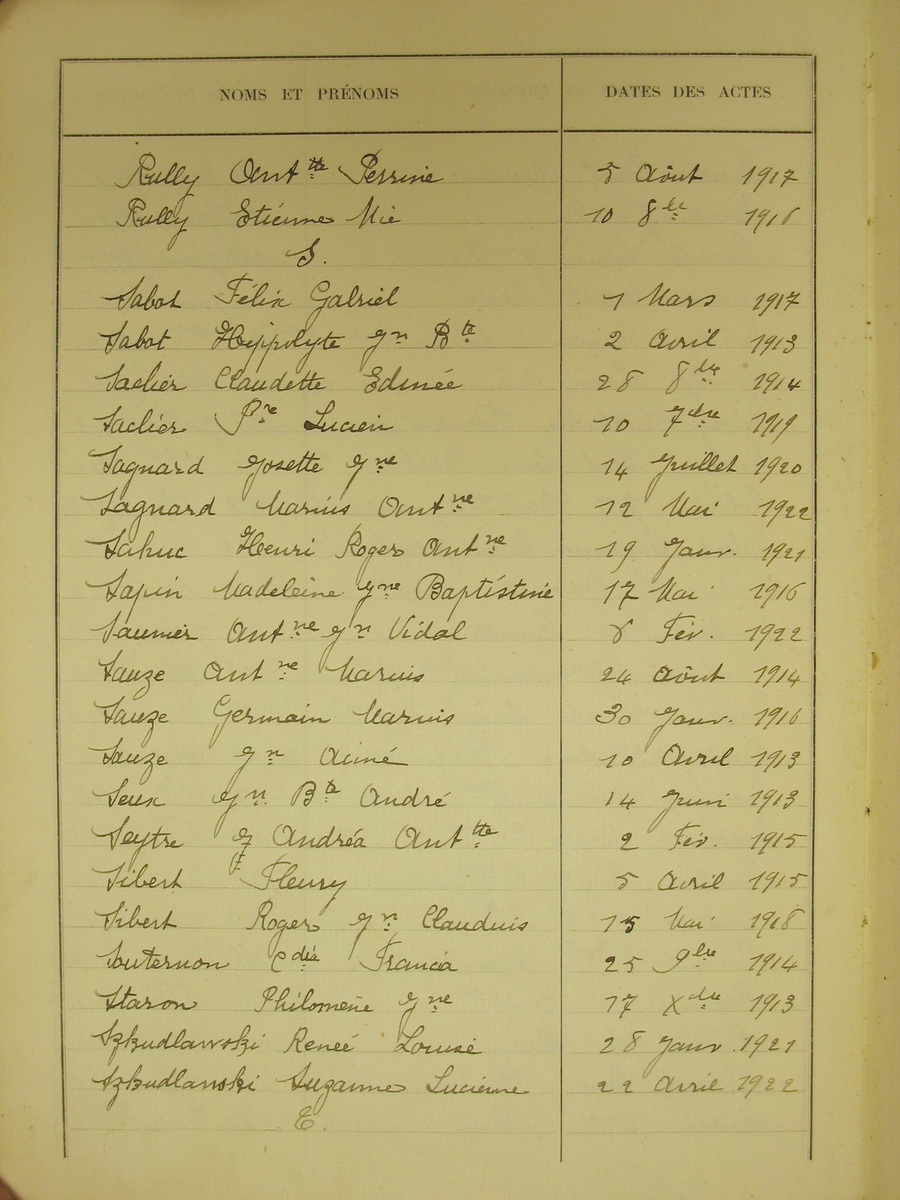 NOMS ET PRÉNOMS DATES DES ACTES
Rully Anttte Perrine 5 Août 1917
Rully Etienne Mie 10 8bre 1916
S.
Sabot Félix Gabriel 1 Mars 1917
Sabot Hippolyte Jn Bte 2 Avril 1913
Saclier Claudette Edmée 28 8bre 1914
Saclier Pre Lucien 10 7bre 1919
Sagnard Josette Jne 14 Juillet 1920
Sagnard Marius Antne 12 Mai 1922
Sahuc Henri Roger Antne 19 Janv. 1921
Sapin Madeleine Jne Baptistine 17 Mai 1916
Saumier Antne Jn Vidal 8 Fév. 1922
Sauze Antne Marius 24 Août 1914
Sauze Germain Marius 30 Janv. 1916
Sauze Jn Aimé 10 Avril 1913
Seux Jn Bte André 14 Juin 1913
Seytre J Andréa Anttte 2 Fév. 1915
Sibert Fleury 5 Avril 1915
Sibert Roger Jn Claudius 15 Mai 1918
Souternon Cdia Francia 25 9bre 1914
Staron Philomène Jne 17 Xbre 1913
Szkudlawski Renée Louise 28 Janv. 1921
Szkudlanski Suzanne Lucienne 22 Avril 1922
T.